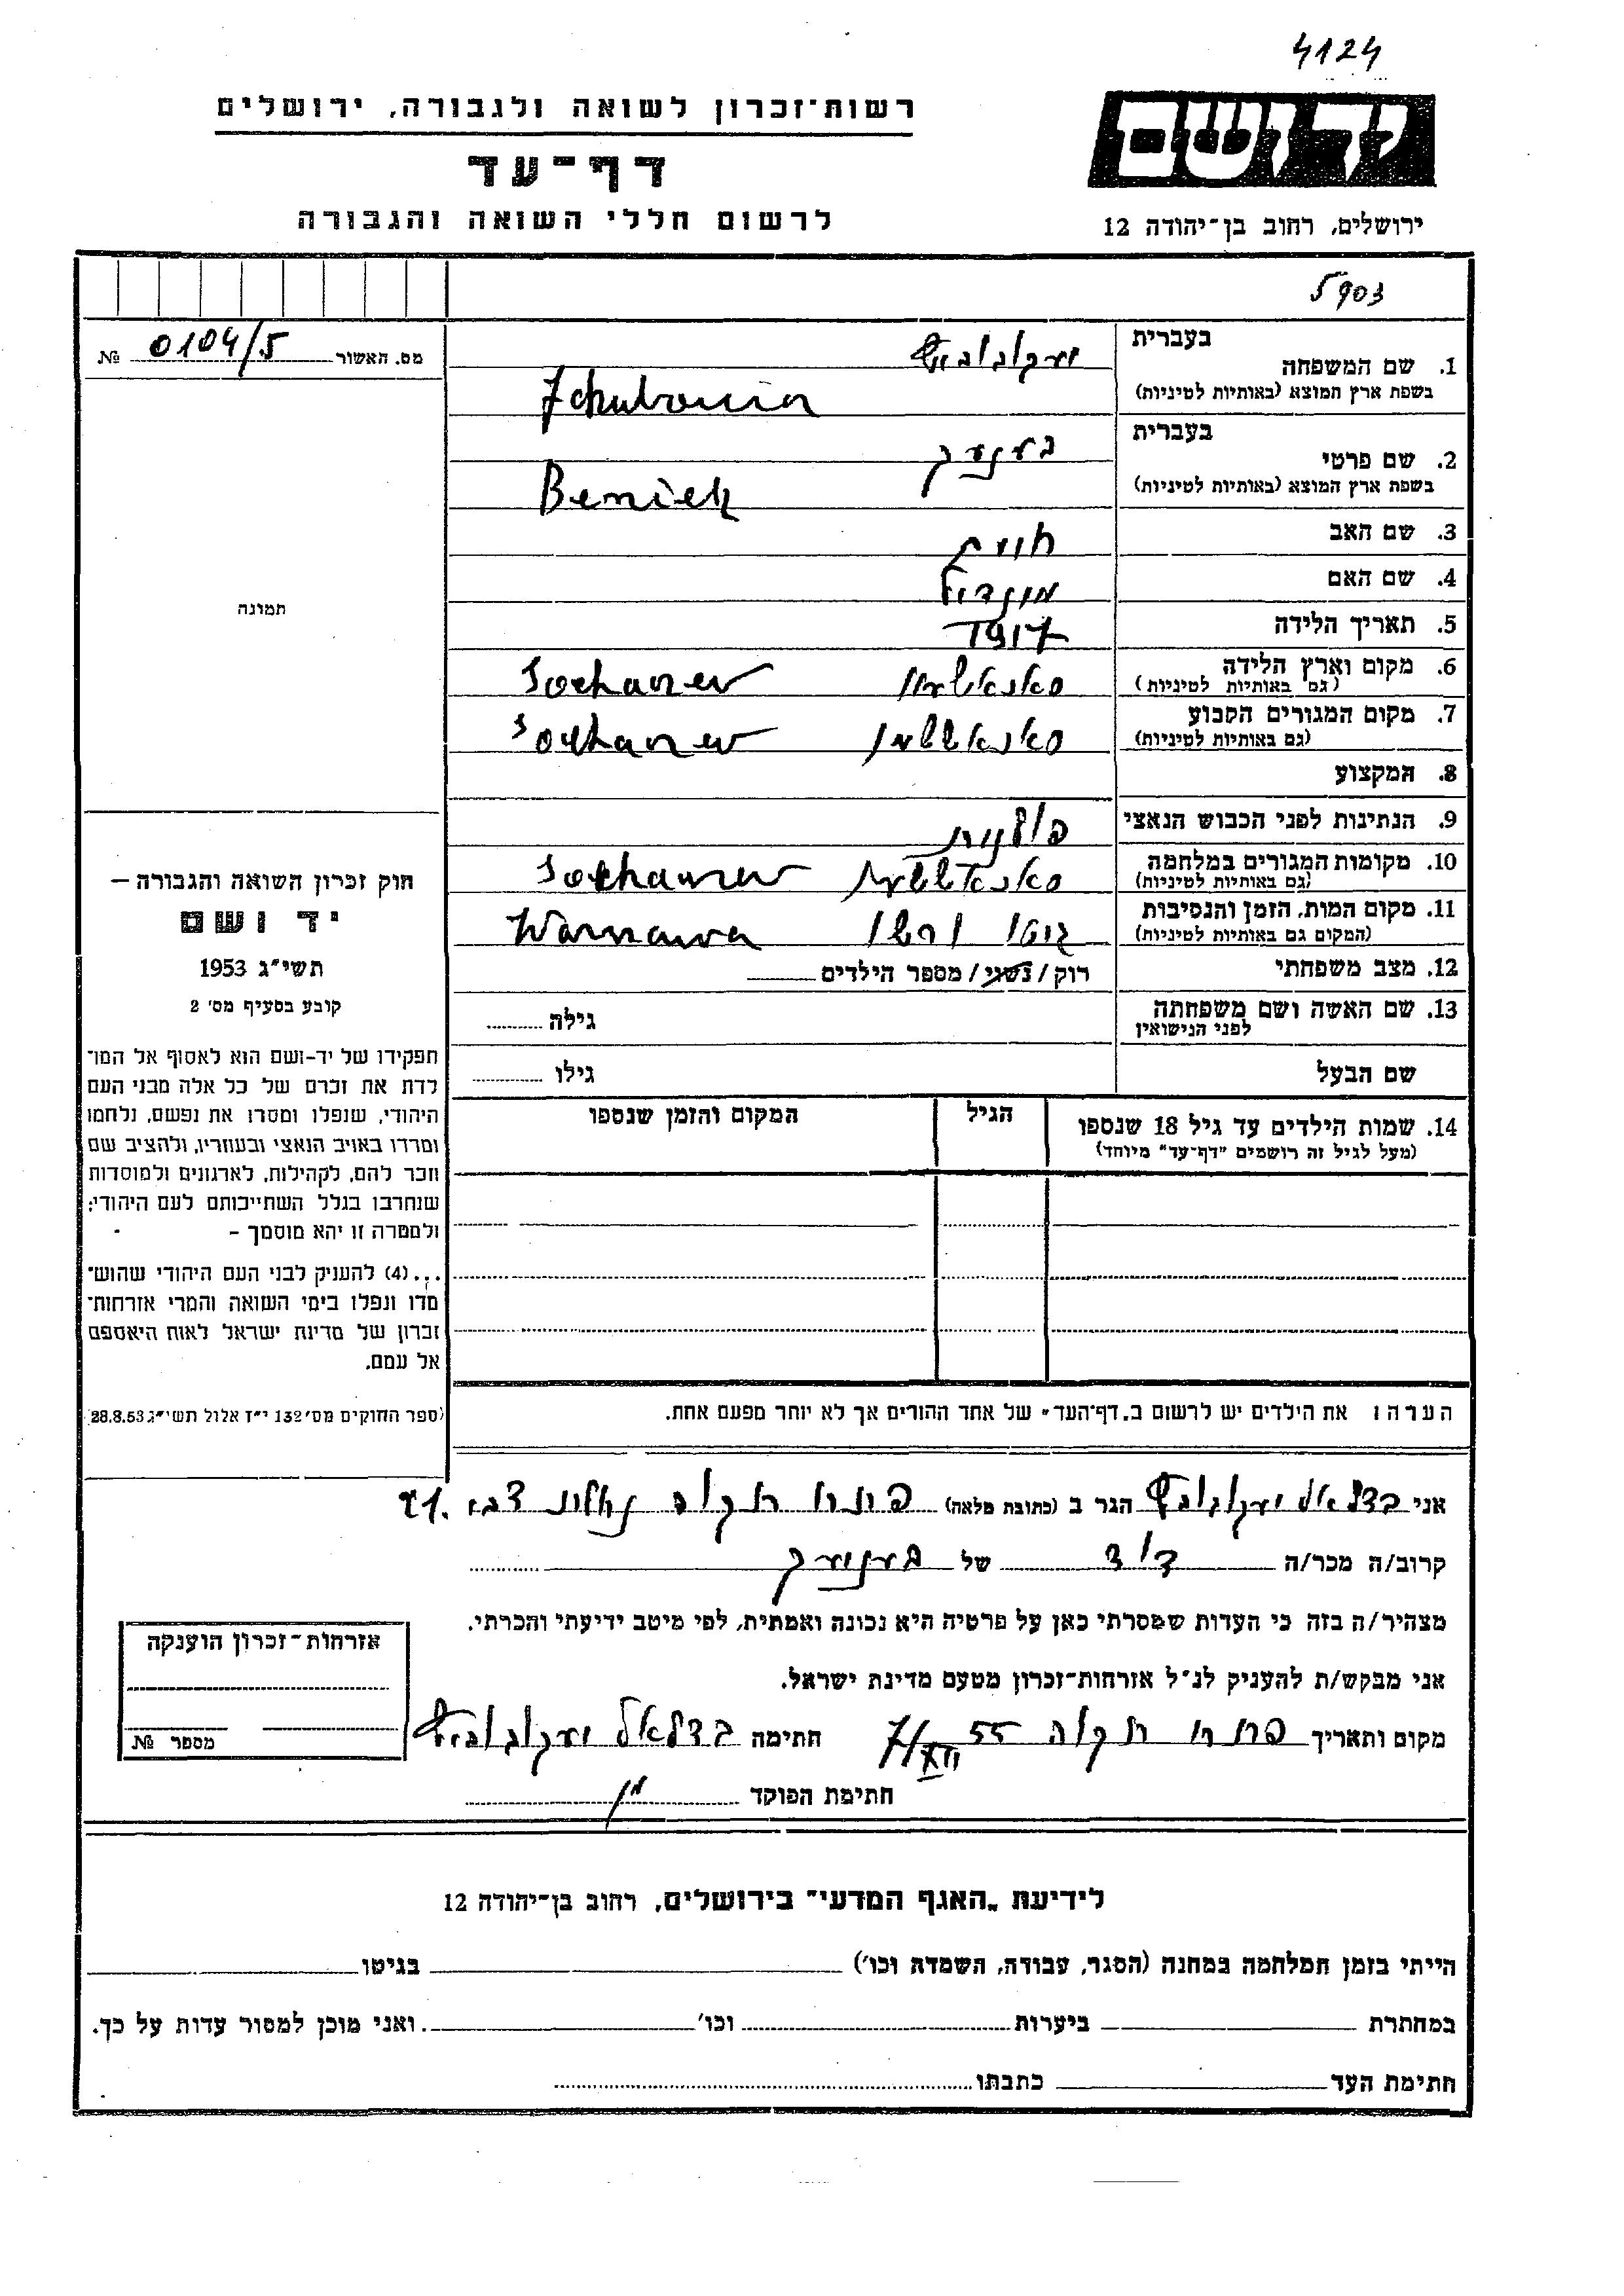 4124
רשות־זכרון לשואה ולגבורה, ירושלים
דף־עד
לרשום חללי השואה והגבורה
יד ושם
ירושלים, רחוב בן־יהודה 12
5903
מס. האשור 0104/5 №
בעברית
1. שם המשפחה יעקובוביץ
בשפת ארץ המוצא (באותיות לטיניות)
בעברית
2. שם פרטי
בשפת ארץ המוצא (באותיות לטיניות) Beniek
3. שם האב
4. שם האם
5. תאריך הלידה 1917
6. מקום וארץ הלידה Sochaner
(גם באותיות לטיניות)
7. מקום המגורים הקבוע Sochaner
(גם באותיות לטיניות)
8. המקצוע
9. הנתינות לפני הכבוש הנאצי פולנית
10. מקומות המגורים במלחמה
(גם באותיות לטיניות)
11. מקום המות, הזמן והנסיבות גיטו ורשו Warszawa
(המקום גם באותיות לטיניות)
12. מצב משפחתי רוק / נשוי / מספר הילדים
13. שם האשה ושם משפחתה גילה
לפני הנישואין
שם הבעל גילו
14. שמות הילדים עד גיל 18 שנספו הגיל המקום והזמן שנספו
(מעל לגיל זה רושמים "דף־עד" מיוחד)
תמונה
חוק זכרון השואה והגבורה —
יד ושם
תשי"ג 1953
קובע בסעיף מס' 2
תפקידו של יד-ושם הוא לאסוף אל המו־
לדת את זכרם של כל אלה מבני העם
היהודי, שנפלו ומסרו את נפשם, נלחמו
ומרדו באויב הנאצי ובעוזריו, ולהציב שם
וזכר להם, לקהילות, לארגונים ולמוסדות
שנחרבו בגלל השתייכותם לעם היהודי;
ולמטרה זו יהא מוסמך -
...(4) להעניק לבני העם היהודי שהוש־
מדו ונפלו בימי השואה והמרי אזרחות־
זכרון של מדינת ישראל לאות היאספם
אל עמם.
(ספר החוקים מס' 132 י"ז אלול תשי"ג 28.8.53)
הערה: את הילדים יש לרשום ב„דף־העד" של אחד ההורים אך לא יותר מפעם אחת.
אני בצלאל יעקובוביץ הגר ב (כתובת מלאה) פתח תקוה
קרוב/ה מכר/ה דוד של בעניעק
מצהיר/ה בזה כי העדות שמסרתי כאן על פרטיה היא נכונה ואמתית, לפי מיטב ידיעתי והכרתי.
אני מבקש/ת להעניק לנ"ל אזרחות־זכרון מטעם מדינת ישראל.
מקום ותאריך פתח תקוה 7/XII 55 חתימה בצלאל יעקובוביץ
חתימת הפוקד
אזרחות־זכרון הוענקה
מספר №
לידיעת „האגף המדעי" בירושלים, רחוב בן־יהודה 12
הייתי בזמן המלחמה במחנה (הסגר, עבודה, השמדה וכו') בגיטו
במחתרת ביערות וכו' ואני מוכן למסור עדות על כך.
חתימת העד כתבתו